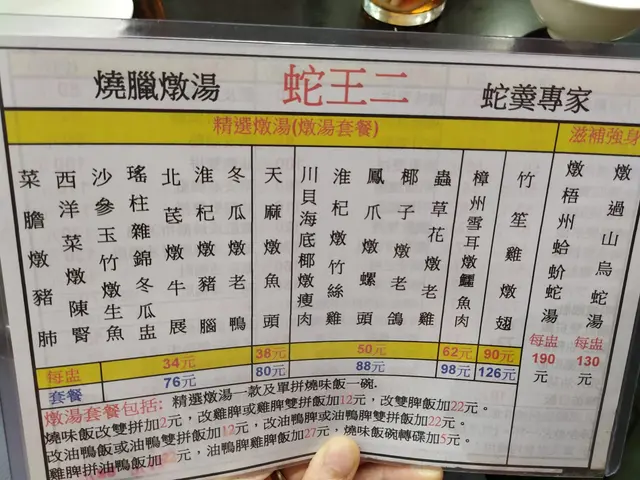 燒臘燉湯 蛇王二 蛇羹專家
精選燉湯(燉湯套餐) 滋補強身
菜膽燉豬肺
西洋菜燉陳腎
沙參玉竹燉生魚
瑤柱雜錦冬瓜盅
北茋燉牛展
淮杞燉豬腦
冬瓜燉老鴨
天麻燉魚頭
川貝海底椰燉瘦肉
淮杞燉竹絲雞
鳳爪燉螺頭
椰子燉老鴿
蟲草花燉老雞
樟州雪耳燉鱷魚肉
竹笙雞燉翅
燉梧州蛤蚧蛇湯
燉過山烏蛇湯
每盅 34元 38元 50元 62元 90元 每盅190元 每盅130元
套餐 76元 80元 88元 98元 126元
燉湯套餐包括: 精選燉湯一款及單拼燒味飯一碗.
燒味飯改雙拼加2元，改雞脾或雞脾雙拼飯加12元，改雙脾飯加22元。
改油鴨飯或油鴨雙拼飯加12元，改油鴨脾或油鴨脾雙拼飯加22元。
雞脾拼油鴨飯加元，油鴨脾雞脾飯加27元，燒味飯碗轉碟加5元。